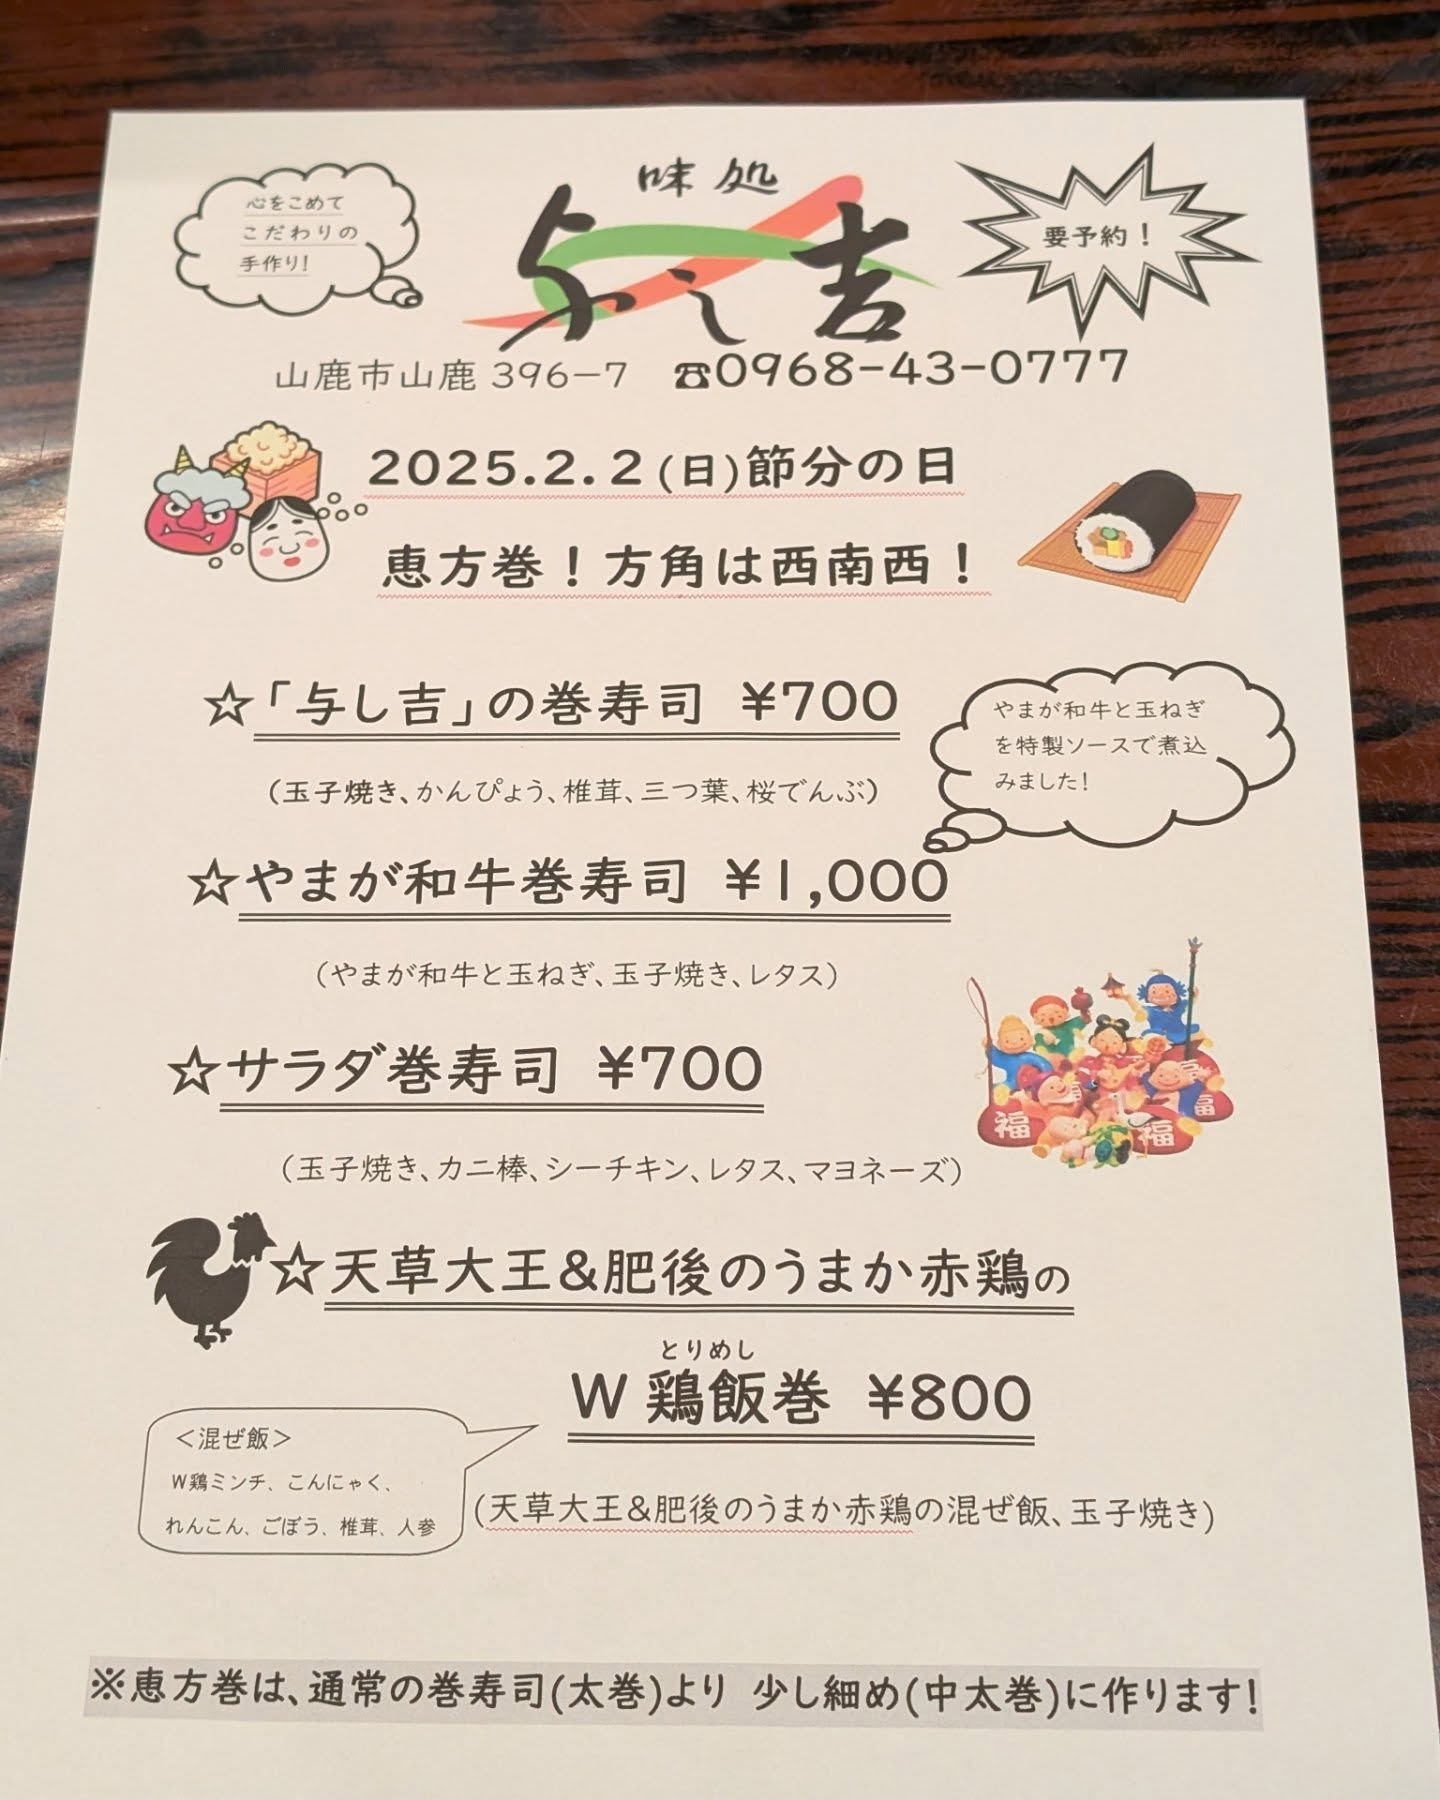 心をこめて
こだわりの
手作り!
味処
与し吉
要予約！
山鹿市山鹿396−7 ☎0968-43-0777
2025.2.2(日)節分の日
恵方巻！方角は西南西！
☆「与し吉」の巻寿司 ¥700
(玉子焼き、かんぴょう、椎茸、三つ葉、桜でんぶ)
やまが和牛と玉ねぎ
を特製ソースで煮込
みました!
☆やまが和牛巻寿司 ¥1,000
(やまが和牛と玉ねぎ、玉子焼き、レタス)
☆サラダ巻寿司 ¥700
(玉子焼き、カニ棒、シーチキン、レタス、マヨネーズ)
福
福
福
☆天草大王&肥後のうまか赤鶏の
とりめし
W鶏飯巻 ¥800
<混ぜ飯>
W鶏ミンチ、こんにゃく、
れんこん、ごぼう、椎茸、人参
(天草大王&肥後のうまか赤鶏の混ぜ飯、玉子焼き)
※恵方巻は、通常の巻寿司(太巻)より 少し細め(中太巻)に作ります!